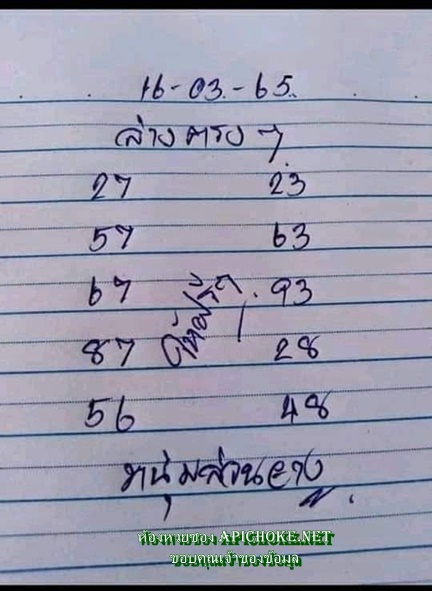 16-03-65
ล่างตรง 7
27 23
57 63
67 93
87 28
56 48
หนุ่มสวนยาง
ห้องหวยของ APICHOKE.NET
ขอบคุณเจ้าของข้อมูล